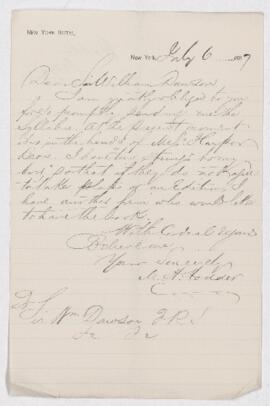 NEW YORK HOTEL
New York July 6 1887
Dear Sir William Dawson
I am greatly obliged to you
for so promptly sending me the
Syllabus. At the present moment
it is in the hands of Messrs Harper
Bros. I shall
but for that if they do not agree
to take of an Edition, I
have another firm who would like
to have the book.
With Cordial regards
Believe me,
Yours Sincerely
M. H. Hodder
To
Sir Wm Dawson F.R.S